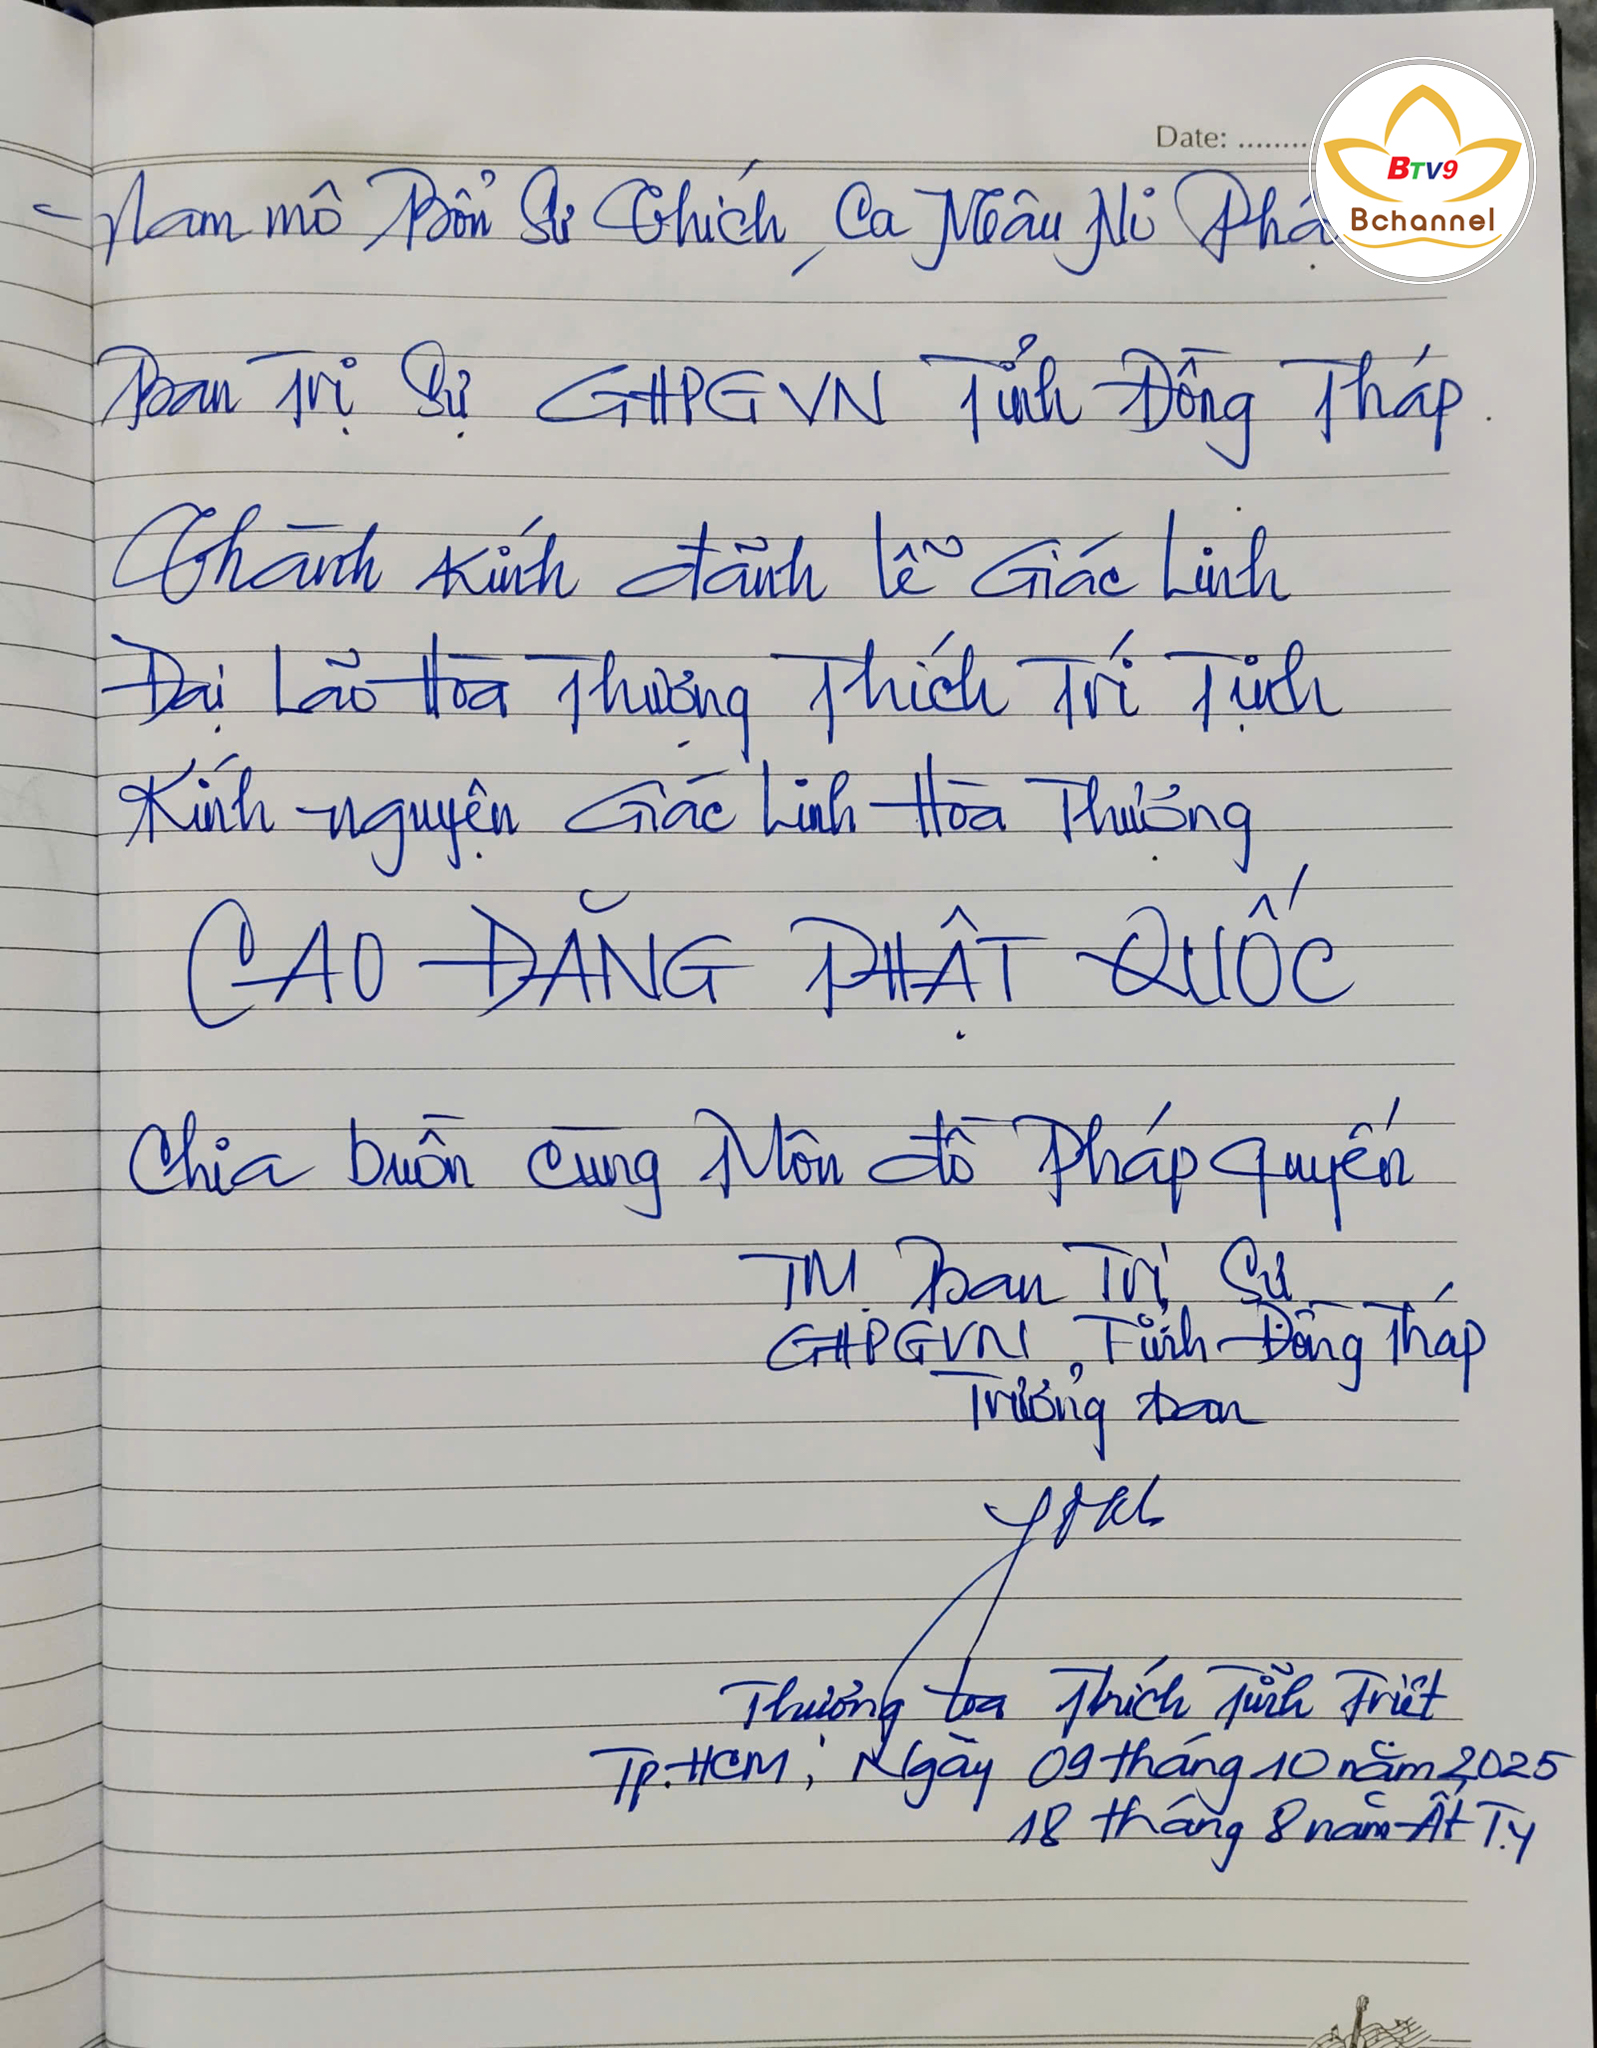 Date: ........
BTV9
Bchannel
- Nam mô Bổn Sư Thích Ca Mâu Ni
Ban Trị Sự GHPGVN Tỉnh Đồng Tháp.
Thành kính đãnh lễ Giác Linh
Đại Lão Hòa Thượng Thích Trí Tịnh
Kính nguyện Giác Linh Hòa Thượng
CAO ĐĂNG PHẬT QUỐC
Chia buồn cùng Môn đồ Pháp quyến
TM. Ban Trị Sự
GHPGVN Tỉnh Đồng Tháp
Trưởng ban
Thượng tọa Thích Tỉnh Triết
Tp.HCM, Ngày 09 tháng 10 năm 2025
18 tháng 8 năm Ất Tỵ